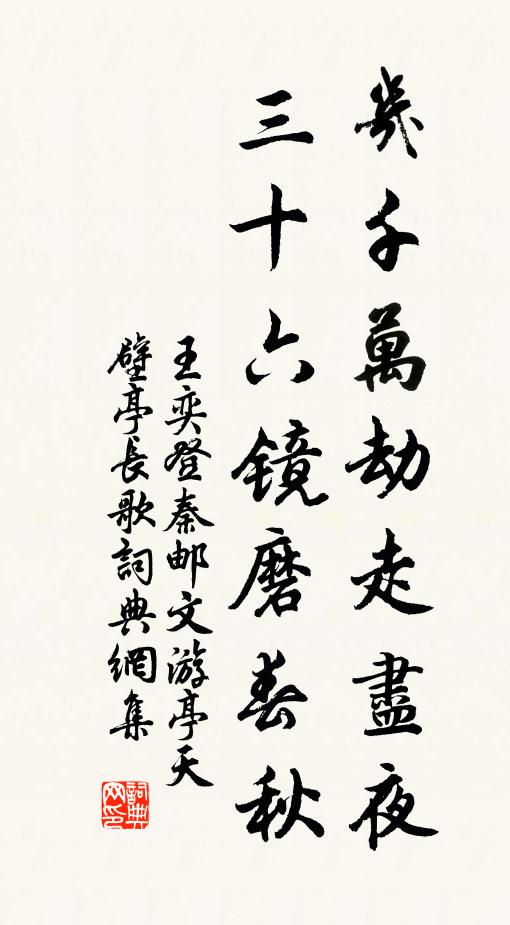 幾千萬劫走盡夜
三十六鏡磨春秋
王奕登秦邮文游亭天
壁亭長歌詞典網集
詞典
网印